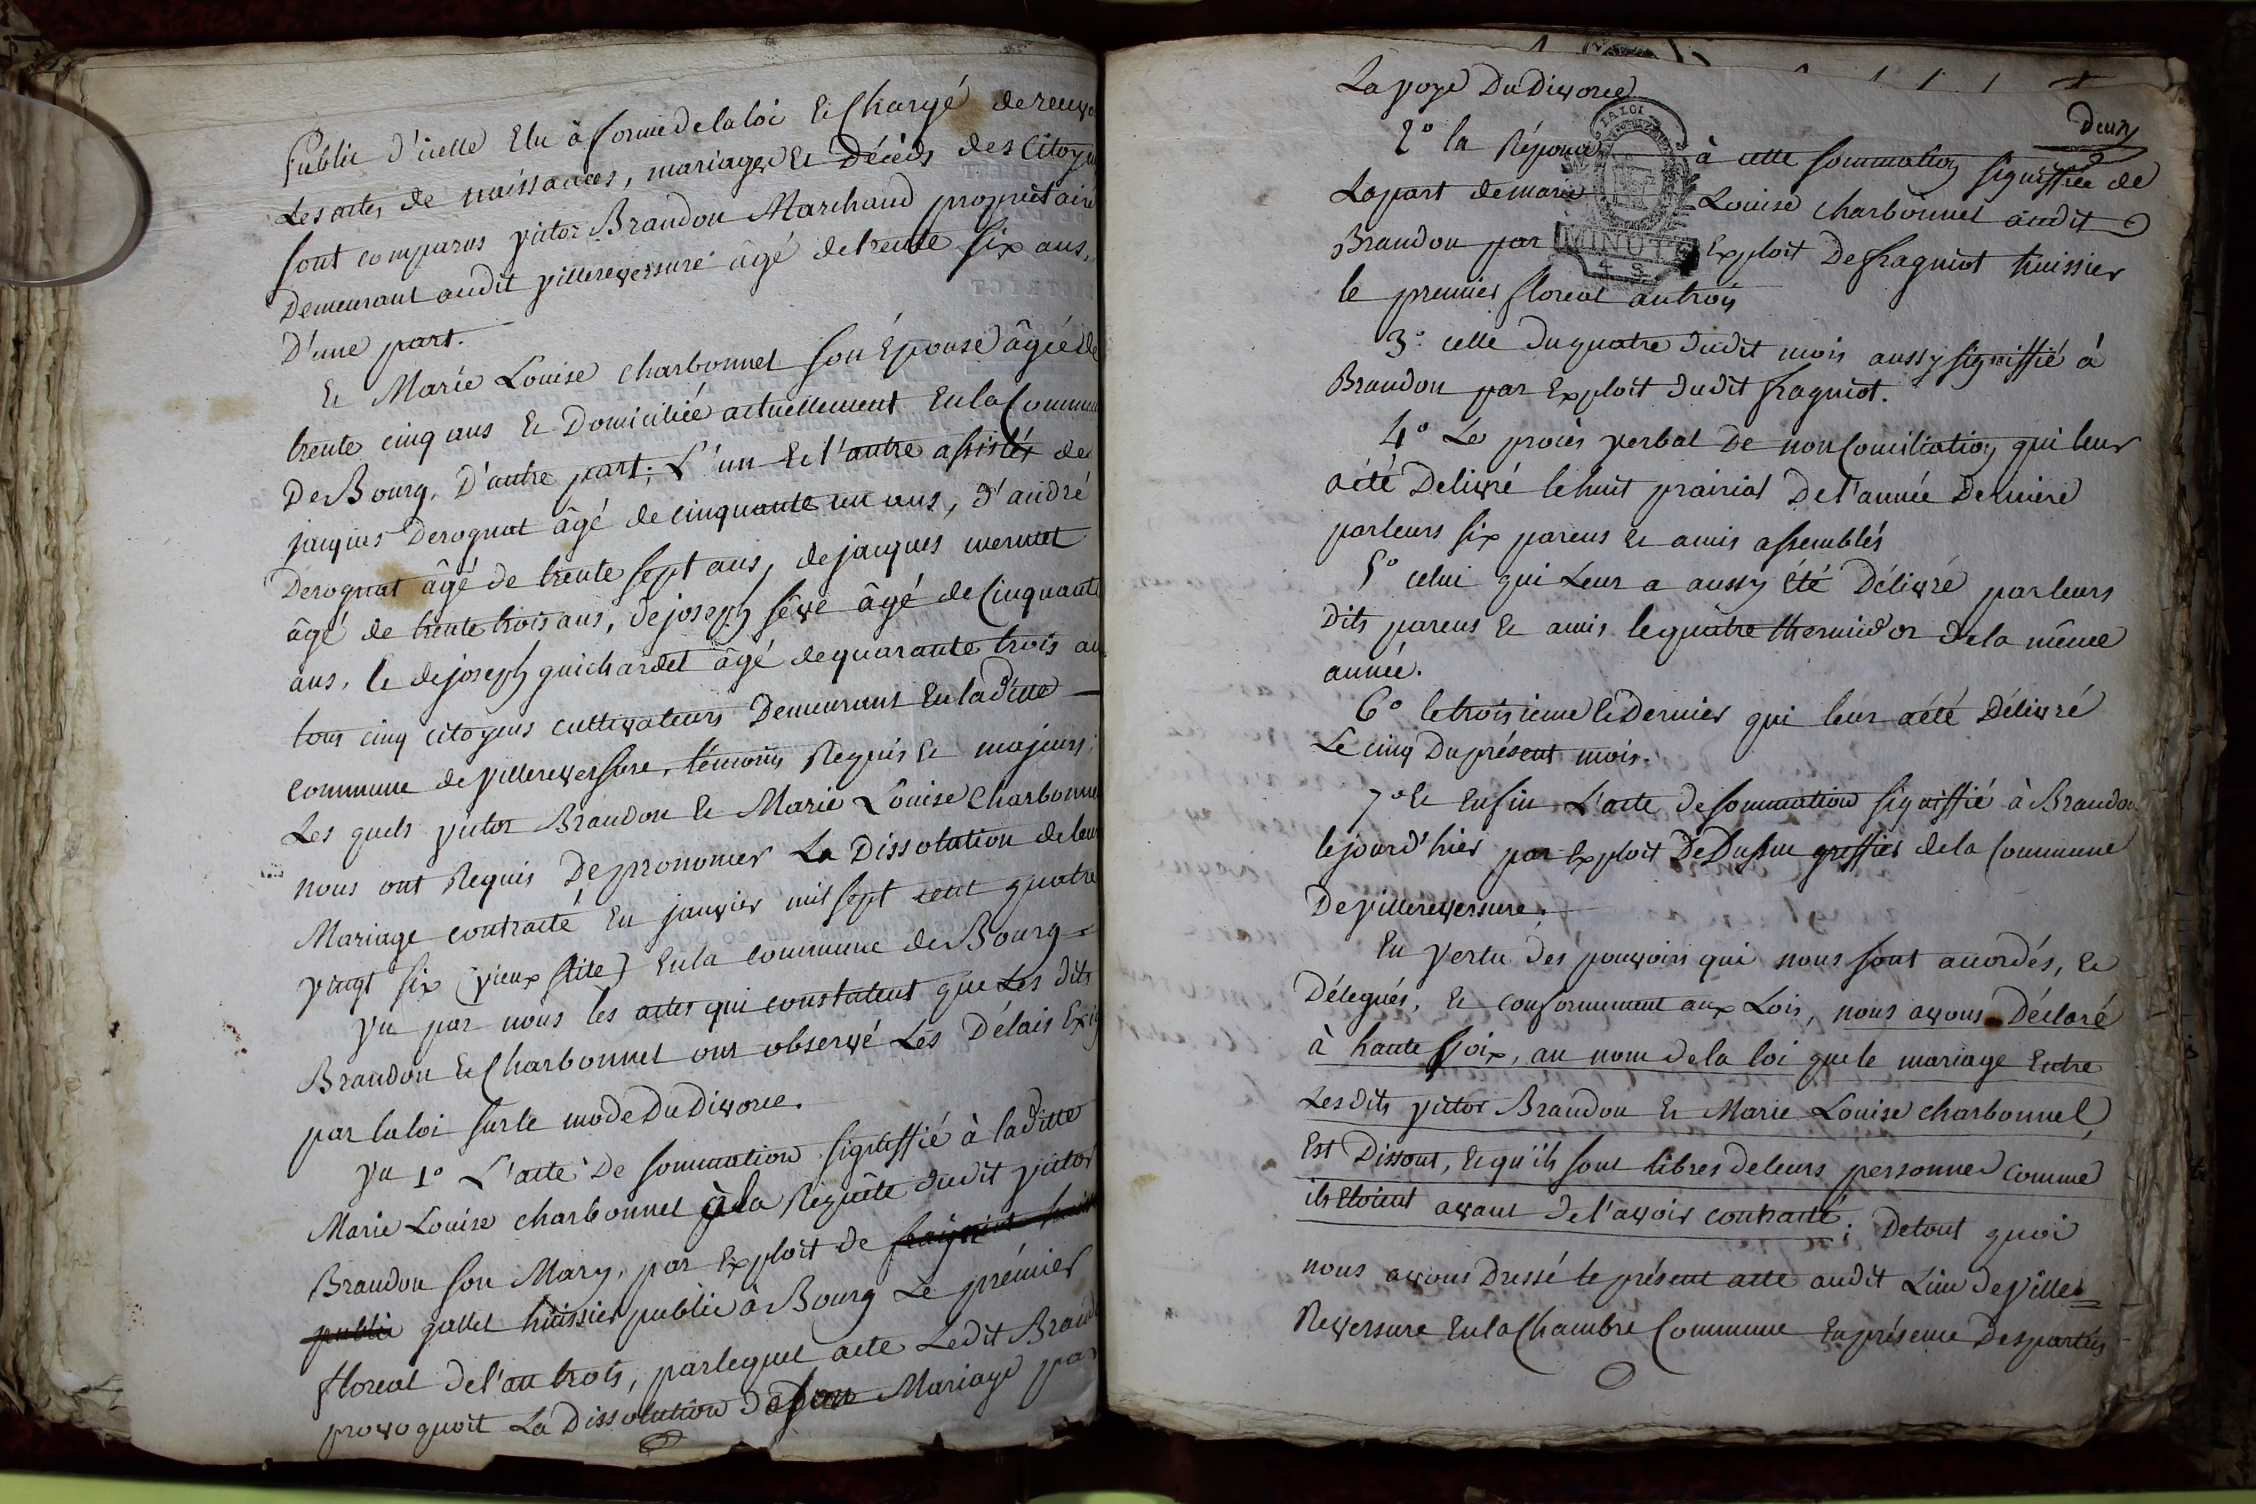 Public d'icelle Elu à forme de la loi Et Chargé de recevo
Les actes de naissances, mariages Et Décéds des Citoyen
sont comparus victor Brandon Marchand propriétaire
Demeurant audit villereversure âgé de trente six ans,
D'une part.
Et Marie Louise charbonnel son Épouse âgée de
trente cinq ans Et Domiciliée actuellement En la Commun
De Bourg, D'autre part; L'un Et l'autre assistés de
jacques Derognat âgé de cinquante un ans, d'andré
Derognat âgé de trente sept ans, de jacques mermet
âgé de trente trois ans, de joseph sêve âgé de Cinquante
ans, Et de joseph guichardet âgé de quarante trois an
tous cinq citoyens cultivateurs Demeurant En la ditte
commune de villereversure, témoins Requis Et majeurs;
Les quels victor Brandon Et Marie Louise Charbonne
nous ont Requis De prononcer La Dissolution de leur
Mariage contracté En janvier mil sept cent quatre
vingt six (vieux stile) En la commune de Bourg =
Vu par nous les actes qui constatent que Les dits
Brandon Et Charbonnel ont observé Les Délais Exig
par la loi sur le mode Du Divorce.
Vu 1º L'acte De sommation signiffié à la ditte
Marie Louise charbonnel à la Requête dudit victor
Brandon son Mary, par Exploit de fragniot huiss
public gallet huissier public à Bourg Le prémier
floreal de l'an trois, par lequel acte Le dit Brand
provoquoit La Dissolution de son Mariage par
La voye Du Divorce
Deux
2º la Réponce à cette sommation signiffiée de
La part de marie Louise charbonnel audit
Brandon par Exploit De fragniot huissier
le premier floreal an trois
LA LOI
MINUTE
4 S.
3º celle du quatre dudit mois aussy signiffié à
Brandon par Exploit dudit fragniot.
4º Le procès verbal De non Conciliation qui leur
a été Delivré le huit prairial De l'année Derniere
par leurs six parens Et amis assemblés
5º celui qui Leur a aussy été Délivré par leurs
Dits parens Et amis le quatre thermidor de la même
année.
6º le troisieme Et Dernier qui leur a été Délivré
Le cinq Du présent mois.
7º Et Enfin L'acte de sommation signiffié à Brandon
le jour d'hier par Exploit De Dufour greffier de la Commune
De villereversure.
En Vertu des pouvoirs qui nous sont accordés, Et
Délegués, Et conformement aux Lois, nous avons Déclaré
à haute Voix, au nom de la loi que le mariage Entre
Les dits victor Brandon Et Marie Louise charbonnel,
Est Dissout, Et qu'ils sont libres de leurs personnes comme
ils Etoient avant de l'avoir contracté; De tout quoi
nous avons Dressé le présent acte audit Lieu de Ville=
Reversure En la Chambre Commune En présence Des parties